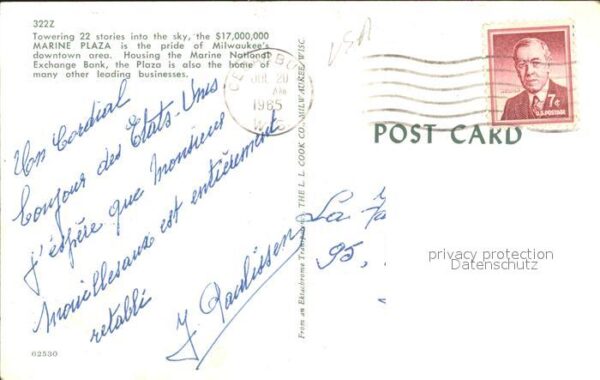 322Z
Towering 22 stories into the sky, the $17,000,000
MARINE PLAZA is the pride of Milwaukee's
downtown area. Housing the Marine National
Exchange Bank, the Plaza is also the home of
many other leading businesses.
Un Cordial
bonjour des États-Unis
J'espère que Monsieur
est entièrement
retabli
J. Paulissen
62530
From an Ektachrome Transparency THE L. L. COOK CO., MILWAUKEE, WISC.
USA
JUL 20
AM
1965
WIS
7¢
U.S. POSTAGE
POST CARD
La
95,
privacy protection
Datenschutz